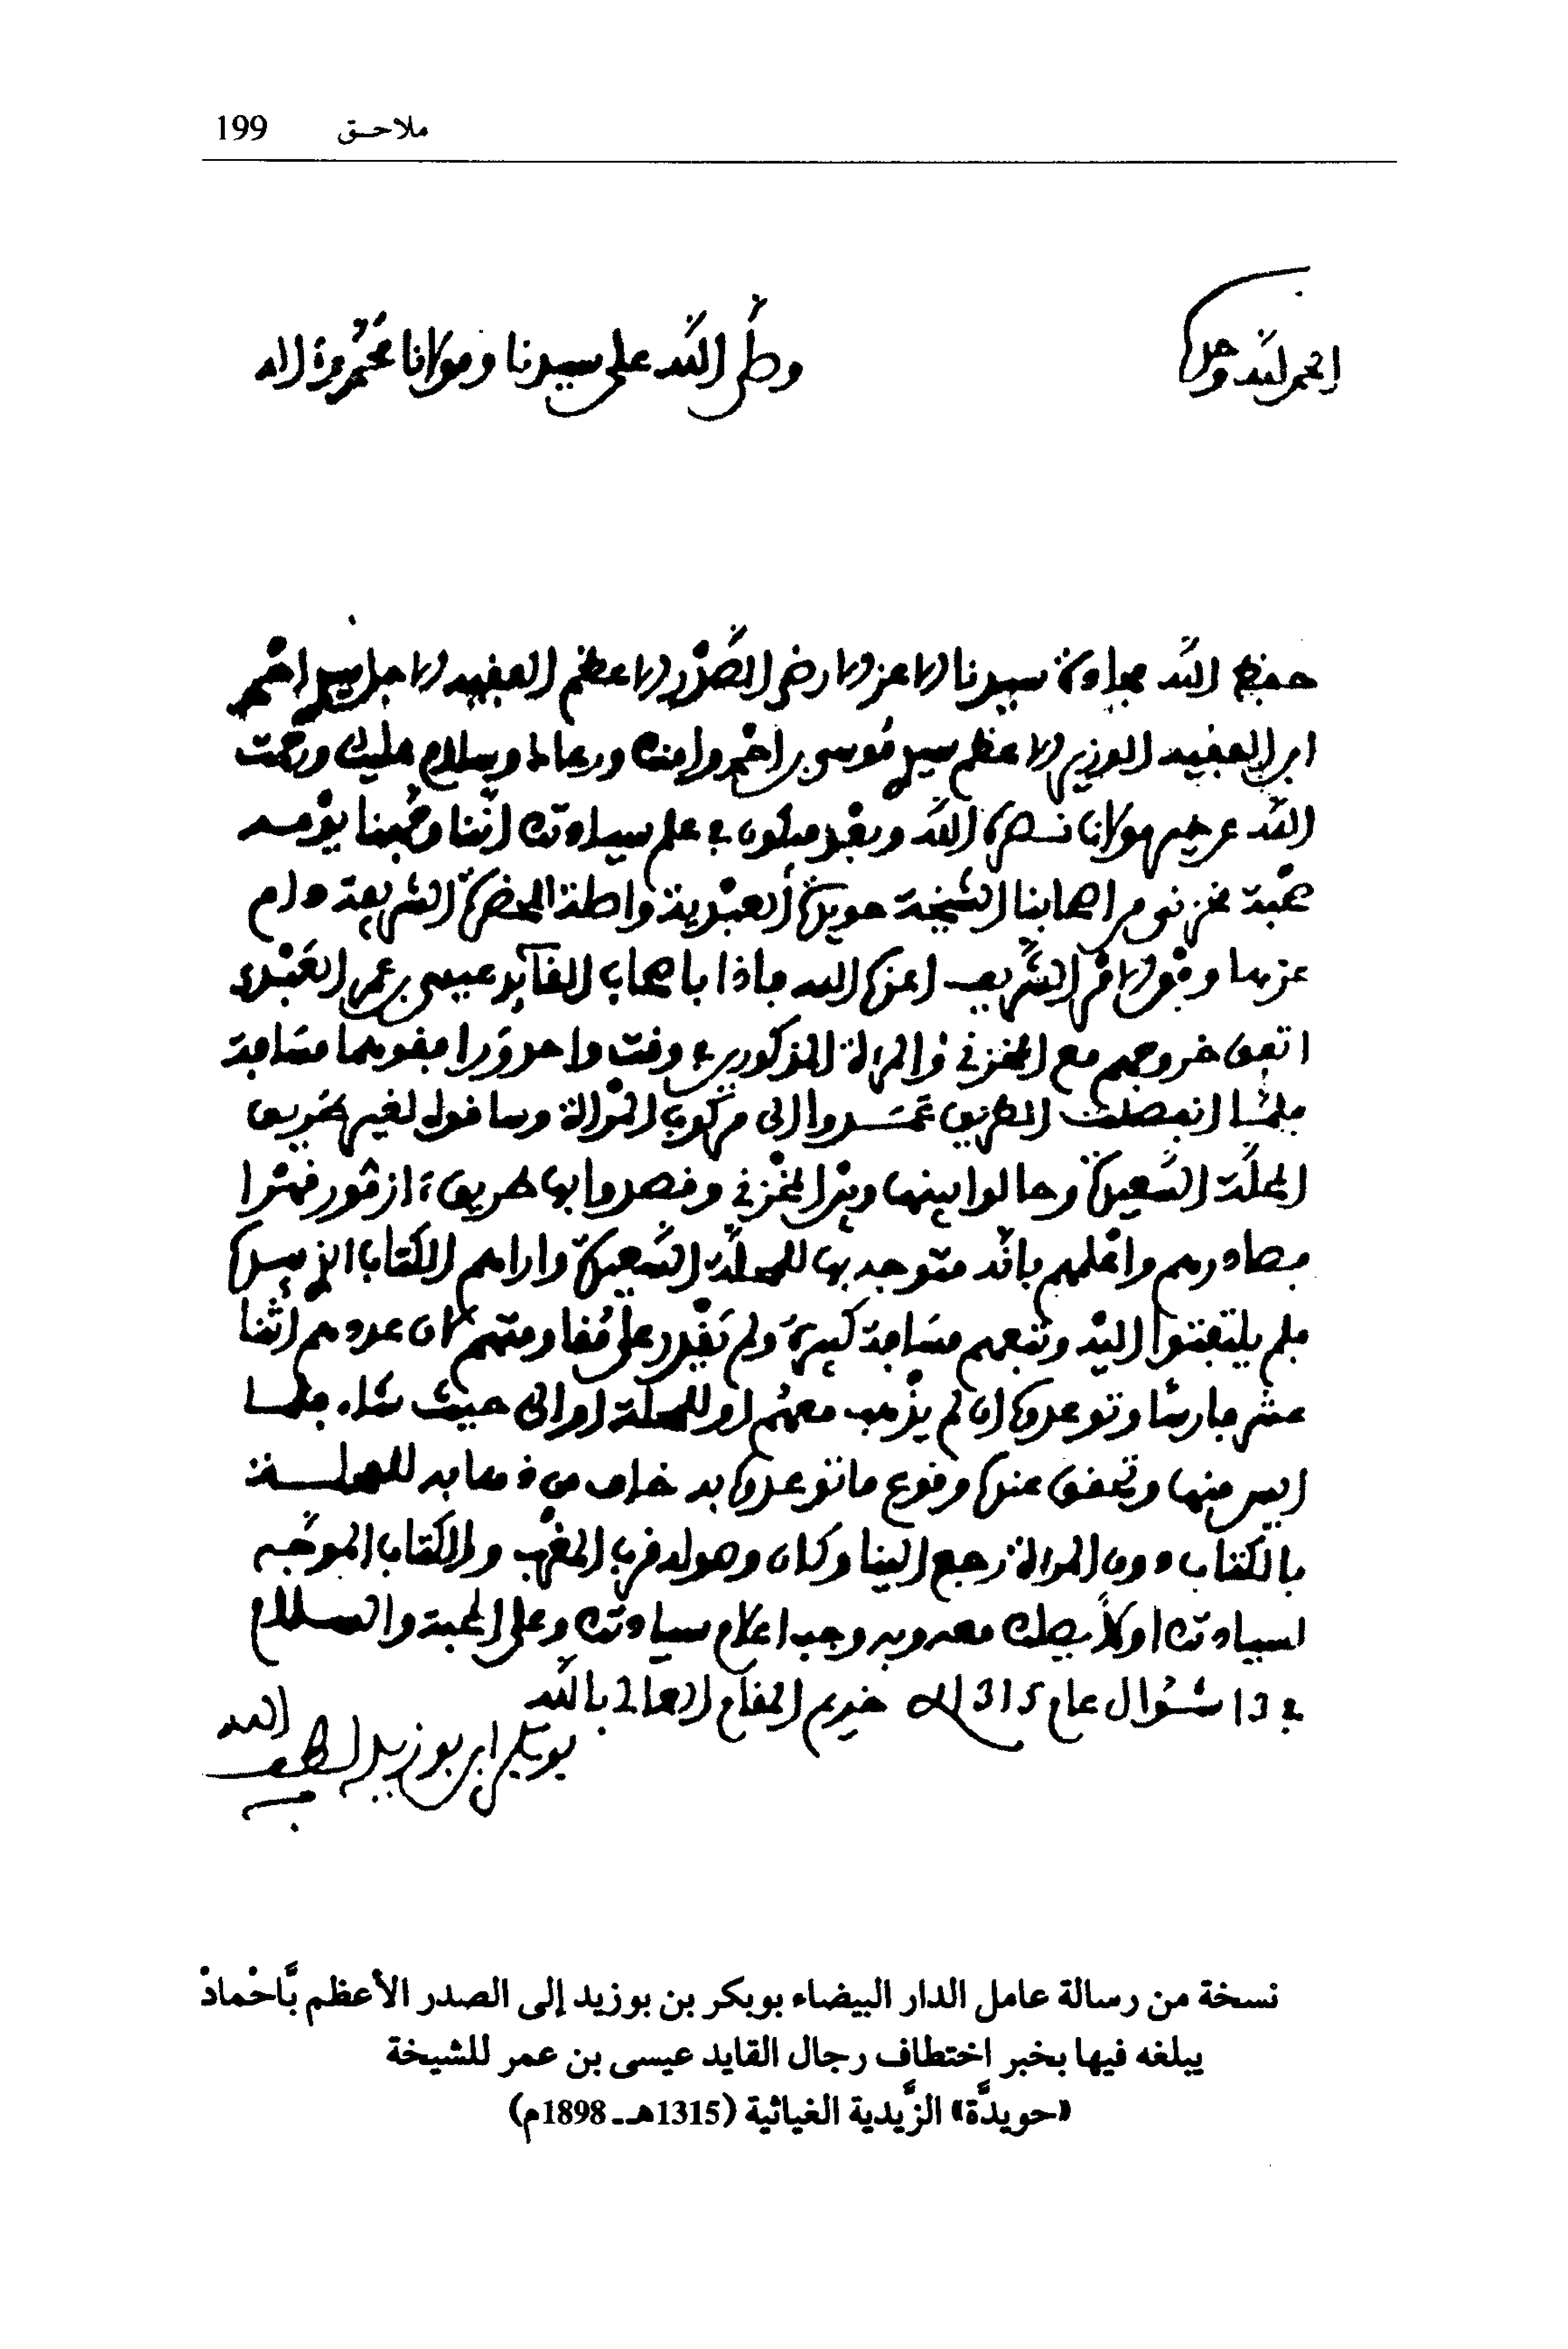 ملاحـق 199
الحمد لله وحده
وصلى الله على سيدنا ومولانا محمد وءاله
حفظ الله بجاوه سيدنا الاعز الارضى الصدر الاعظم الفقيه الاجل سيدي احمد
ابن الفقيه الوزير الاعظم سيدي موسى بن احمد وامنك ورعاك وسلام عليك ورحمت
الله عن خير مولانا نصره الله وبعد فيكون في علم سيادتك اننا وجهنا يومه
صحبة مخزني من اصحابنا الشيخة حويدة العبدية واصلة للحضرة الشريفة دام
عزها وفق الامر الشريف اعزه الله فاذا باصحاب القائد عيسى بن عمر العبدي
اتفق خروجهم مع المخزني والمراة المذكورين في وقت واحد ورافقوهما مسافة
فلما انفصلت الطريق عمدوا الى مركوب المراة وسا لغير طريق
المحلة السعيدة وحالوا بينها وبين المخزني وقصدوا بها طريق ءازمور قهرا
فطاردهم واعلمهم بانه متوجه بها للمحلة السعيدة واراهم الكتاب الذي بيده
فلم يلتفتوا اليه وتبعهم مسافة كبيرة ولم يقدر على مقاومتهم لان عددهم اثنا
عشر فارسا وتوعدوه ان لم يذهب معهم او للمحلة او الى حيث شاء فلما
ايس منها وتحقق عنده وقوع ما توعدوه به خاف من ذهابه للمحلـة
بالكتاب دون المراة رجع الينا وكان وصوله قرب المغرب والكتاب الموجه
لسيادتك اولا يصلك معه وبه وجب اعلام سيادتك وعلى المحبة والسلام
في 13 شوال عام 1315 خديم المقام العالي بالله
بوبكر ابن بوزيد لطف الله به
نسخة من رسالة عامل الدار البيضاء بوبكر بن بوزيد إلى الصدر الأعظم بَّاحْمادْ
يبلغه فيها بخبر اختطاف رجال القايد عيسى بن عمر للشيخة
«حويدَّة» الزَّيدية الغياثية (1315هـ ـ 1898م)